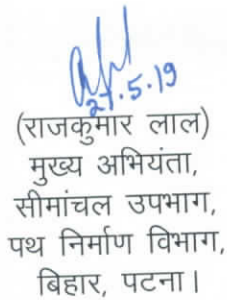 27.5.19
(राजकुमार लाल)
मुख्य अभियंता,
सीमांचल उपभाग,
पथ निर्माण विभाग,
बिहार, पटना।